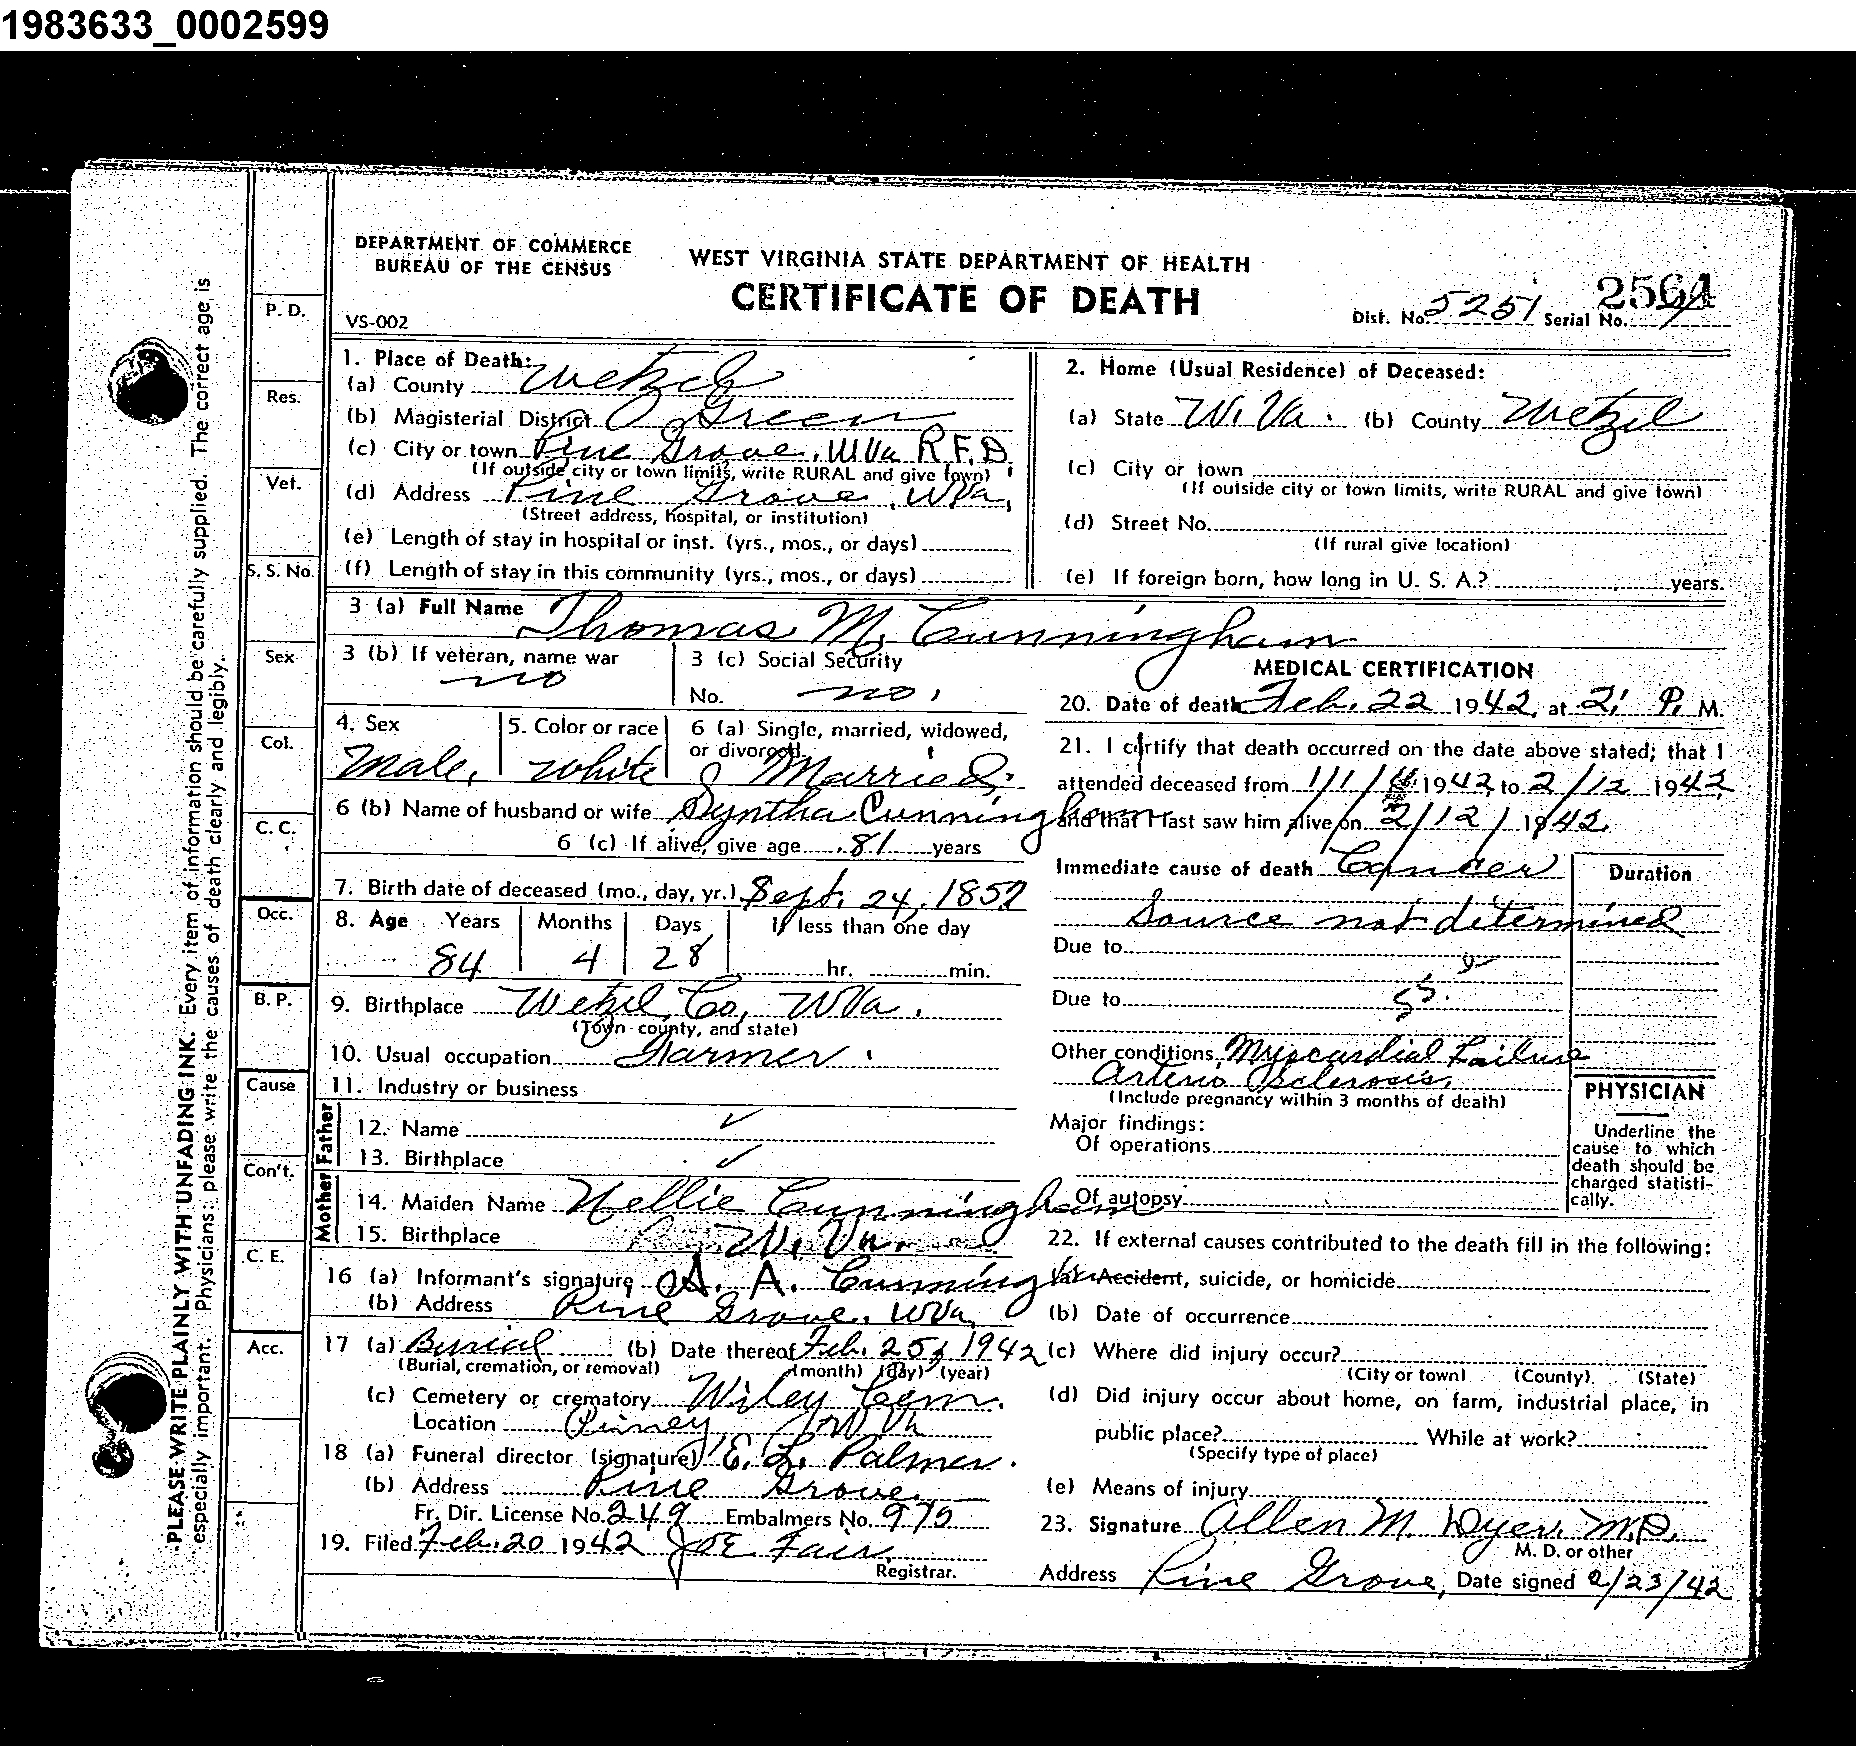 1983633_0002599
DEPARTMENT OF COMMERCE
BUREAU OF THE CENSUS
WEST VIRGINIA STATE DEPARTMENT OF HEALTH
CERTIFICATE OF DEATH
VS-002
Dist. No. 5251 Serial No. 2564
PLEASE WRITE PLAINLY WITH UNFADING INK. Every item of information should be carefully supplied. The correct age is
especially important. Physicians: please write the causes of death clearly and legibly.
P. D.
Res.
Vet.
S. S. No.
Sex
Col.
C. C.
Occ.
B. P.
Cause
Con't.
C. E.
Acc.
1. Place of Death:
(a) County Wetzel
(b) Magisterial District Green
(c) City or town Pine Grove, W Va R.F.D
(If outside city or town limits, write RURAL and give town)
(d) Address Pine Grove, W Va,
(Street address, hospital, or institution)
(e) Length of stay in hospital or inst. (yrs., mos., or days)
(f) Length of stay in this community (yrs., mos., or days)
2. Home (Usual Residence) of Deceased:
(a) State W. Va. (b) County Wetzel
(c) City or town
(If outside city or town limits, write RURAL and give town)
(d) Street No.
(If rural give location)
(e) If foreign born, how long in U. S. A.? years.
3 (a) Full Name Thomas M. Cunningham
3 (b) If veteran, name war
no
3 (c) Social Security
No. no.
4. Sex
Male.
5. Color or race
white
6 (a) Single, married, widowed,
or divorced.
Married.
6 (b) Name of husband or wife Syntha Cunningham
6 (c) If alive, give age 81 years
7. Birth date of deceased (mo., day, yr.) Sept. 24, 1857
8. Age Years Months Days If less than one day
84 4 28 hr. min.
9. Birthplace Wetzel, Co, W Va.
(Town county, and state)
10. Usual occupation Farmer.
11. Industry or business
Father
12. Name ✓
13. Birthplace ✓
Mother
14. Maiden Name Nellie Cunningham
15. Birthplace W. Va.
16 (a) Informant's signature A. A. Cunningham
(b) Address Pine Grove, W Va,
17 (a) Burial (b) Date thereof Feb. 25, 1942
(Burial, cremation, or removal) (month) (day) (year)
(c) Cemetery or crematory Wiley Cem.
Location Piney W Va
18 (a) Funeral director (signature) E. L. Palmer.
(b) Address Pine Grove.
Fr. Dir. License No. 249 Embalmers No. 975
19. Filed Feb. 20 1942 Joe Fair.
Registrar.
MEDICAL CERTIFICATION
20. Date of death Feb. 22 1942, at 2; P. M.
21. I certify that death occurred on the date above stated; that I
attended deceased from 1/1/ 1942, to 2/12 1942
and that I last saw him alive on 2/12/1942.
Immediate cause of death Cancer
Duration
Source not determined
Due to
Due to 55.
Other conditions Myocardial Failure
Arterio Sclerosis,
(Include pregnancy within 3 months of death)
Major findings:
Of operations
Of autopsy
PHYSICIAN
Underline the
cause to which
death should be
charged statisti-
cally.
22. If external causes contributed to the death fill in the following:
(a) Accident, suicide, or homicide
(b) Date of occurrence
(c) Where did injury occur?
(City or town) (County) (State)
(d) Did injury occur about home, on farm, industrial place, in
public place? While at work?
(Specify type of place)
(e) Means of injury
23. Signature Allen M. Dyer. M.D.
M. D. or other
Address Pine Grove, Date signed 2/23/42